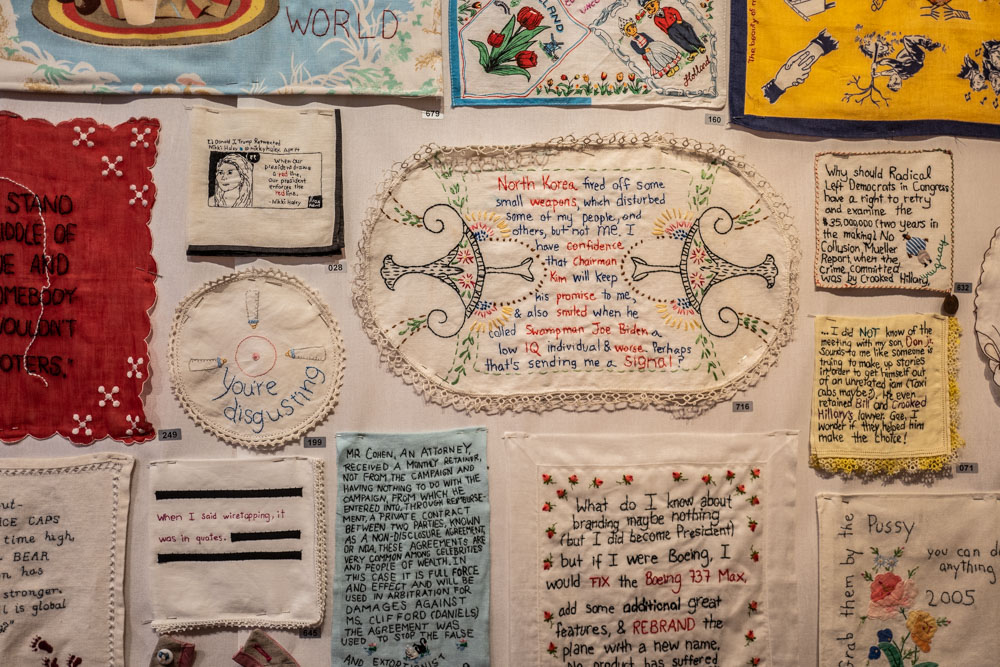 WORLD
679
LAND
Holland
160
The beauty of m
STAND
IDDLE OF
E AND
OMEBODY
OULDN'T
OTERS."
249
Nikki Haley
When our
president draws
a red line,
our president
enforces the
red line.
- Nikki Haley
028
You're
disgusting
199
North Korea fired off some
small weapons, which disturbed
some of my people, and
others, but not me. I
have confidence
that Chairman
Kim will keep
his promise to me,
& also smiled when he
called Swampman Joe Biden a
low IQ individual & worse. Perhaps
that's sending me a signal?
716
Why should Radical
Left Democrats in Congress
have a right to retry
and examine the
$35,000,000 (two years in
the making) No
Collusion Mueller
Report, when the
crime committed
was by Crooked Hillary,
Uruguay
532
... I did NOT know of the
meeting with my son, Don Jr.
Sounds to me like someone is
trying to make up stories
in order to get himself out
of an unrelated jam (Taxi
cabs maybe?). He even
retained Bill and Crooked
Hillary's lawyer. Gee, I
wonder if they helped him
make the choice!
071
out-
ICE CAPS
time high,
. BEAR
on has
stronger.
l is global
When I said wiretapping, it
was in quotes.
645
MR COHEN, AN ATTORNEY,
RECEIVED A MONTHLY RETAINER,
NOT FROM THE CAMPAIGN AND
HAVING NOTHING TO DO WITH THE
CAMPAIGN, FROM WHICH HE
ENTERED INTO, THROUGH REIMBURSE-
MENT, A PRIVATE CONTRACT
BETWEEN TWO PARTIES, KNOWN
AS A NON-DISCLOSURE AGREEMENT
OR NDA. THESE AGREEMENTS ARE
VERY COMMON AMONG CELEBRITIES
AND PEOPLE OF WEALTH. IN
THIS CASE IT IS FULL FORCE
AND EFFECT AND WILL BE
USED IN ARBITRATION FOR
DAMAGES AGAINST
MS. CLIFFORD (DANIELS)
THE AGREEMENT WAS
USED TO STOP THE FALSE
AND EXTORTIONIST
What do I know about
branding maybe nothing
(but I did become President)
but if I were Boeing, I
would FIX the Boeing 737 Max,
add some additional great
features, & REBRAND the
plane with a new name.
No product has suffered
Grab them by the
Pussy
you can do
anything
2005